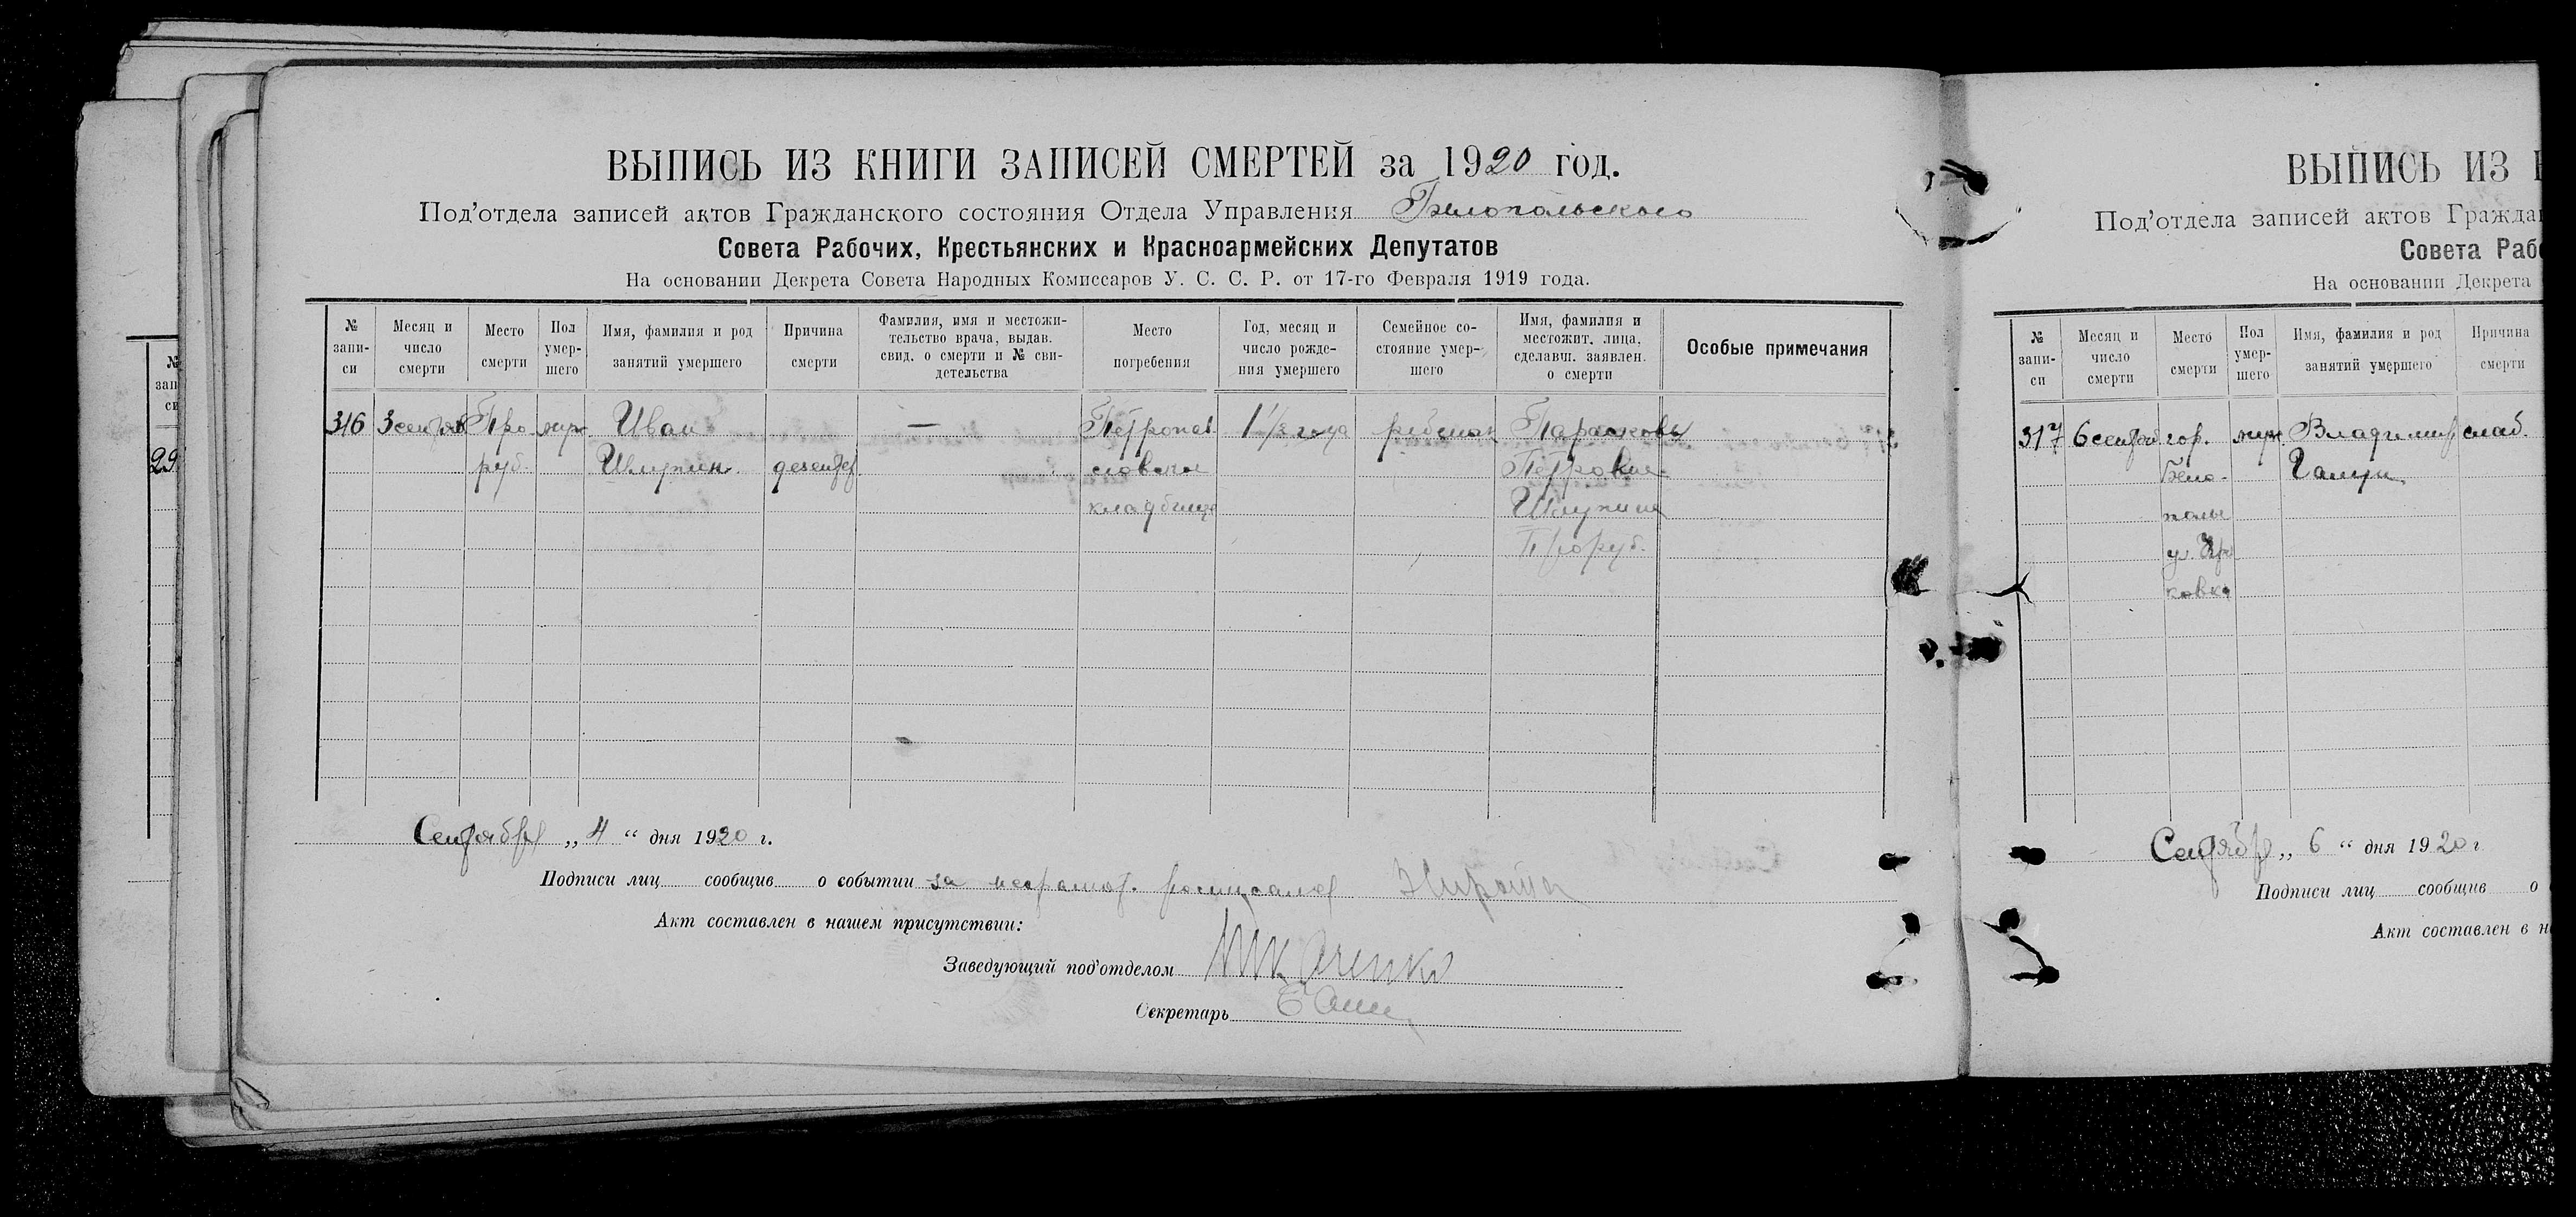 ВЫПИСЬ ИЗ КНИГИ ЗАПИСЕЙ СМЕРТЕЙ за 1920 год.
Под'отдела записей актов Гражданского состояния Отдела Управления Белопольского
Совета Рабочих, Крестьянских и Красноармейских Депутатов
На основании Декрета Совета Народных Комиссаров У. С. С. Р. от 17-го Февраля 1919 года.
№ запи-си
Месяц и число смерти
Место смерти
Пол умер-шего
Имя, фамилия и род занятий умершего
Причина смерти
Фамилия, имя и местожи-тельство врача, выдав. свид. о смерти и № сви-детельства
Место погребения
Год, месяц и число рожде-ния умершего
Семейное со-стояние умер-шего
Имя, фамилия и местожит. лица, сделавш. заявлен. о смерти
Особые примечания
316 3 сентяб Про муж Иван — Петропав 1 1/2 года ребенок Парасковья
руб. дезентер. словское Петровна
кладбище
Проруб.
Сентября „ 4 “ дня 1920 г.
Подписи лиц сообщив о событии за неграмот. росписался
Акт составлен в нашем присутствии:
Заведующий под'отделом Ткаченко
Секретарь
№ зап си
29
ВЫПИСЬ ИЗ
Под'отдела записей актов Граждан
Совета Рабо
На основании Декрета
№ запи-си
Месяц и число смерти
Место смерти
Пол умер-шего
Имя, фамилия и род занятий умершего
Причина смерти
317 6 сентяб гор. муж Владимир слаб.
Бело-
полье
ул.
Сентября „ 6 “ дня 1920 г
Подписи лиц сообщив о
Акт составлен в н